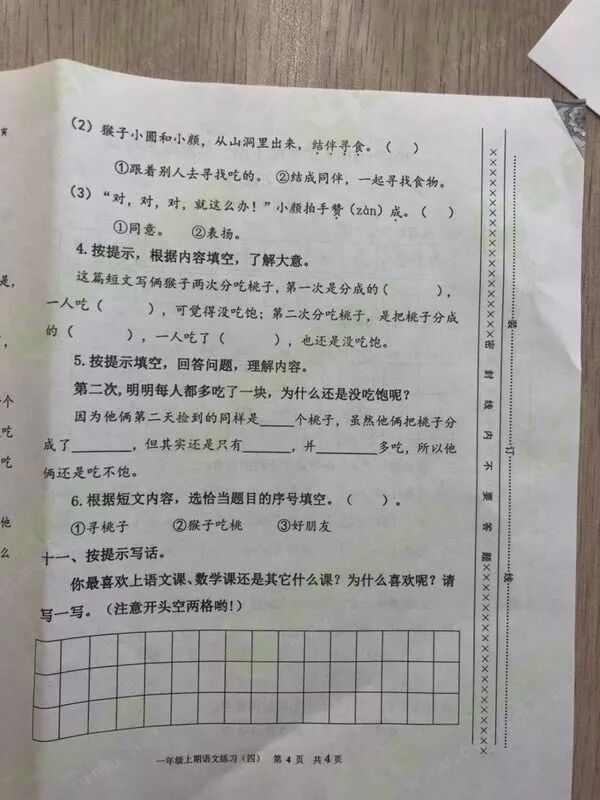 (2) 猴子小圆和小颜，从山洞里出来，结伴寻食。（ ）
①跟着别人去寻找吃的。 ②结成同伴，一起寻找食物。
(3) “对，对，对，就这么办！”小颜拍手赞（zàn）成。（ ）
①同意。 ②表扬。
4. 按提示，根据内容填空，了解大意。
这篇短文写俩猴子两次分吃桃子，第一次是分成的（ ），
一人吃（ ），可觉得没吃饱；第二次分吃桃子，是把桃子分成
的（ ），一人吃了（ ），也还是没吃饱。
5. 按提示填空，回答问题，理解内容。
第二次，明明每人都多吃了一块，为什么还是没吃饱呢？
因为他俩第二天捡到的同样是_____个桃子，虽然他俩把桃子分
成了_______，但其实还是只有_______，并_______多吃，所以他
俩还是吃不饱。
6. 根据短文内容，选恰当题目的序号填空。（ ）。
①寻桃子 ②猴子吃桃 ③好朋友
十一、按提示写话。
你最喜欢上语文课、数学课还是其它什么课？为什么喜欢呢？请
写一写。（注意开头空两格哟!）
一年级上期语文练习（四） 第 4 页 共 4 页
××××××××××××××××密 封 线 内 不 要 答 题××××××××××××××××
装 订 线
是，
个
吃
吃
他
么